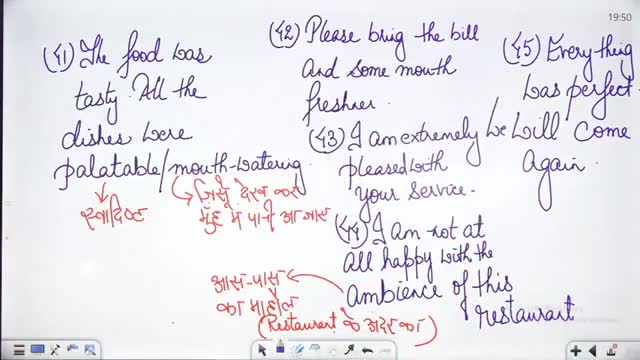 19:50
(41) The food was
tasty. All the
dishes were
palatable/mouth-watering.
स्वादिष्ट
जिसे देख कर
मुँह में पानी आ जाए
(42) Please bring the bill
and some mouth
freshner.
(43) I am extremely
pleased with
your service.
(44) I am not at
all happy with the
ambience of this
restaurant
आस-पास
का माहौल
(Restaurant के अंदर का)
(45) Everything
was perfect.
We will come
again.